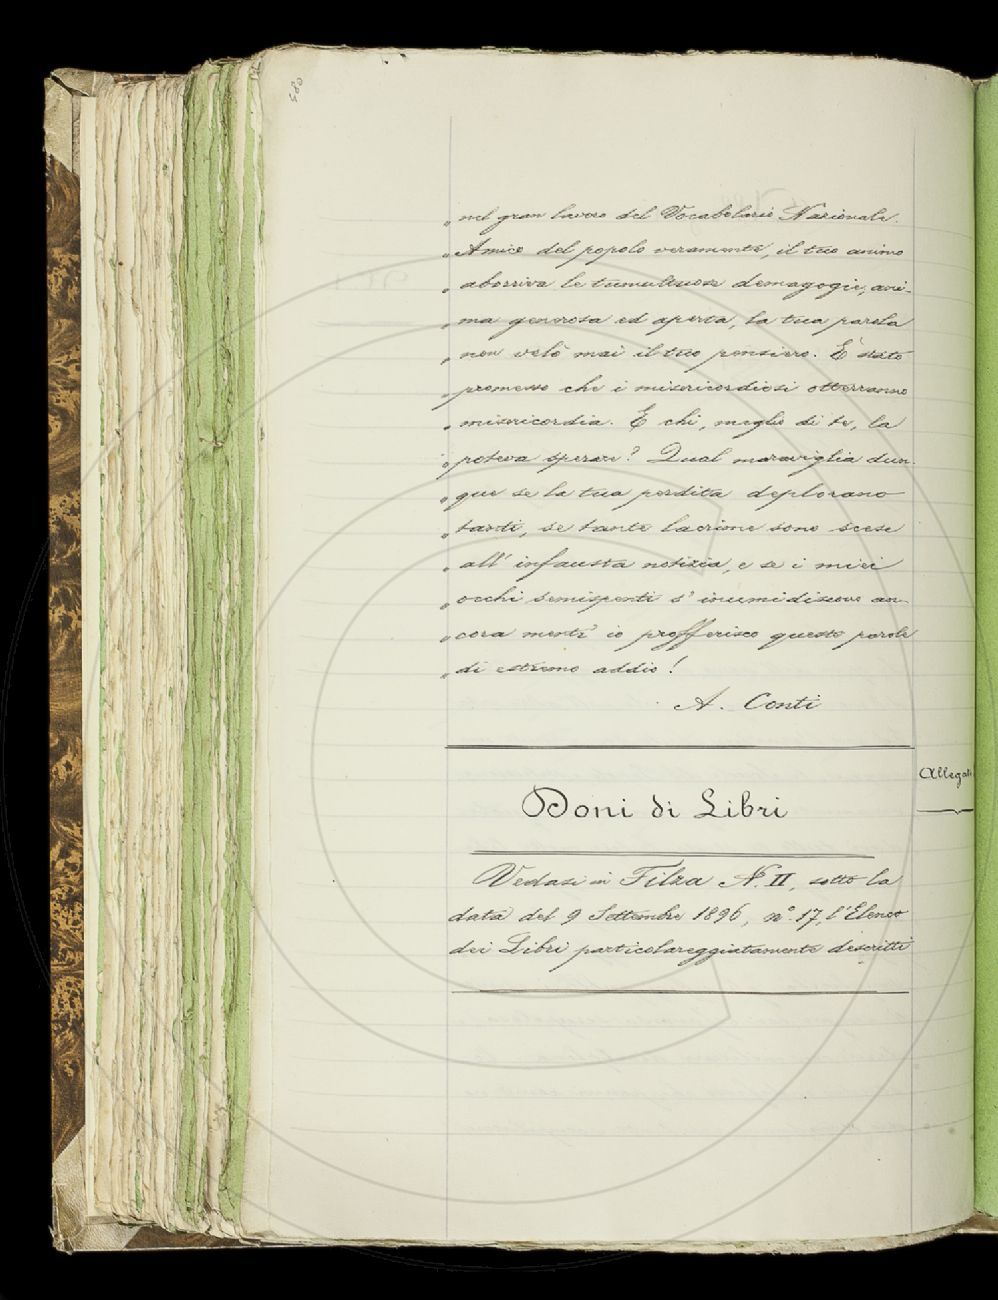 580
„ nel gran lavoro del Vocabolario Nazionale.
„ Amico del popolo veramente, il tuo animo
„ aborriva le tumultuose demagogie, ani-
„ ma generosa ed aperta, la tua parola
„ non velò mai il tuo pensiero. È stato
„ promesso che i misericordiosi otterranno
„ misericordia. E chi, meglio di te, la
„ poteva sperare? Qual maraviglia dun-
„ que se la tua perdita deplorano
„ tanti, se tante lacrime sono scese
„ all' infausta notizia, e se i miei
„ occhi semispenti s' inumidiscono an-
„ cora mentr' io profferisco queste parole
„ di estremo addio!
A. Conti
Allegati
Doni di Libri
Vedasi in Filza N. II, sotto la
data del 9 Settembre 1896, n.° 17, l'Elenco
dei Libri particolareggiatamente descritti